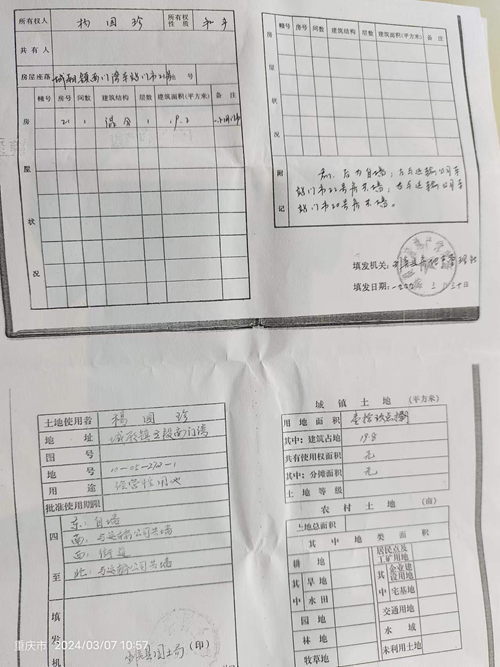 所有权人 杨国珍 所有权性质
共有人
房屋座落 城厢镇南门停车站门市21号 号
房屋状况
幢号 房号 间数 建筑结构 层数 建筑面积(平方米) 备注
21 1 混合 1 19.8
幢号 房号 间数 建筑结构 层数 建筑面积(平方米) 备注
房屋状况
附记
前、后为自墙;左与运输公司车
站门市22号房共墙;右与运输公司车
站门市20号房共墙。
填发机关:
填发日期:
土地使用者 杨国珍
地址 城厢镇
图号
地号 11-05-270-1
用途
批准使用期限
四至
东:自墙
南:与运输公司共墙
西:街道
北:与运输公司共墙
填发机
国土局(印)
城镇土地 (平方米)
用地面积
其中:建筑占地 19.8
共有使用权面积 无
其中:分摊面积 无
土地等级
农村土地 (亩)
土地总面积
其中地类面积
耕地 居民点及工矿用地
其中 旱地 其中 企业建设用地
水田 宅基地
园地 交通用地
林地 水域
牧草地 未利用土地
重庆市 2024/03/07 10:57